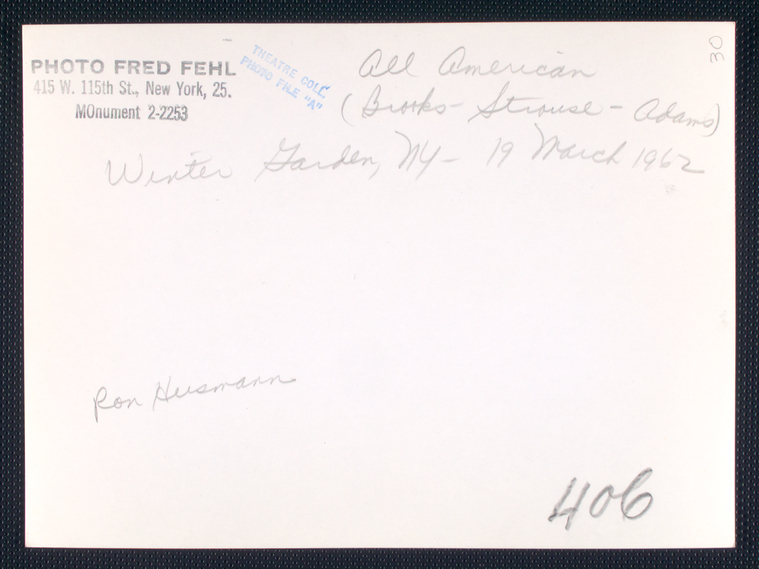 PHOTO FRED FEHL
415 W. 115th St., New York, 25.
MOnument 2-2253
THEATRE COLL.
PHOTO FILE "A"
All American
(Brooks - Strouse - Adams)
Winter Garden, NY - 19 March 1962
30
Ron Husmann
406